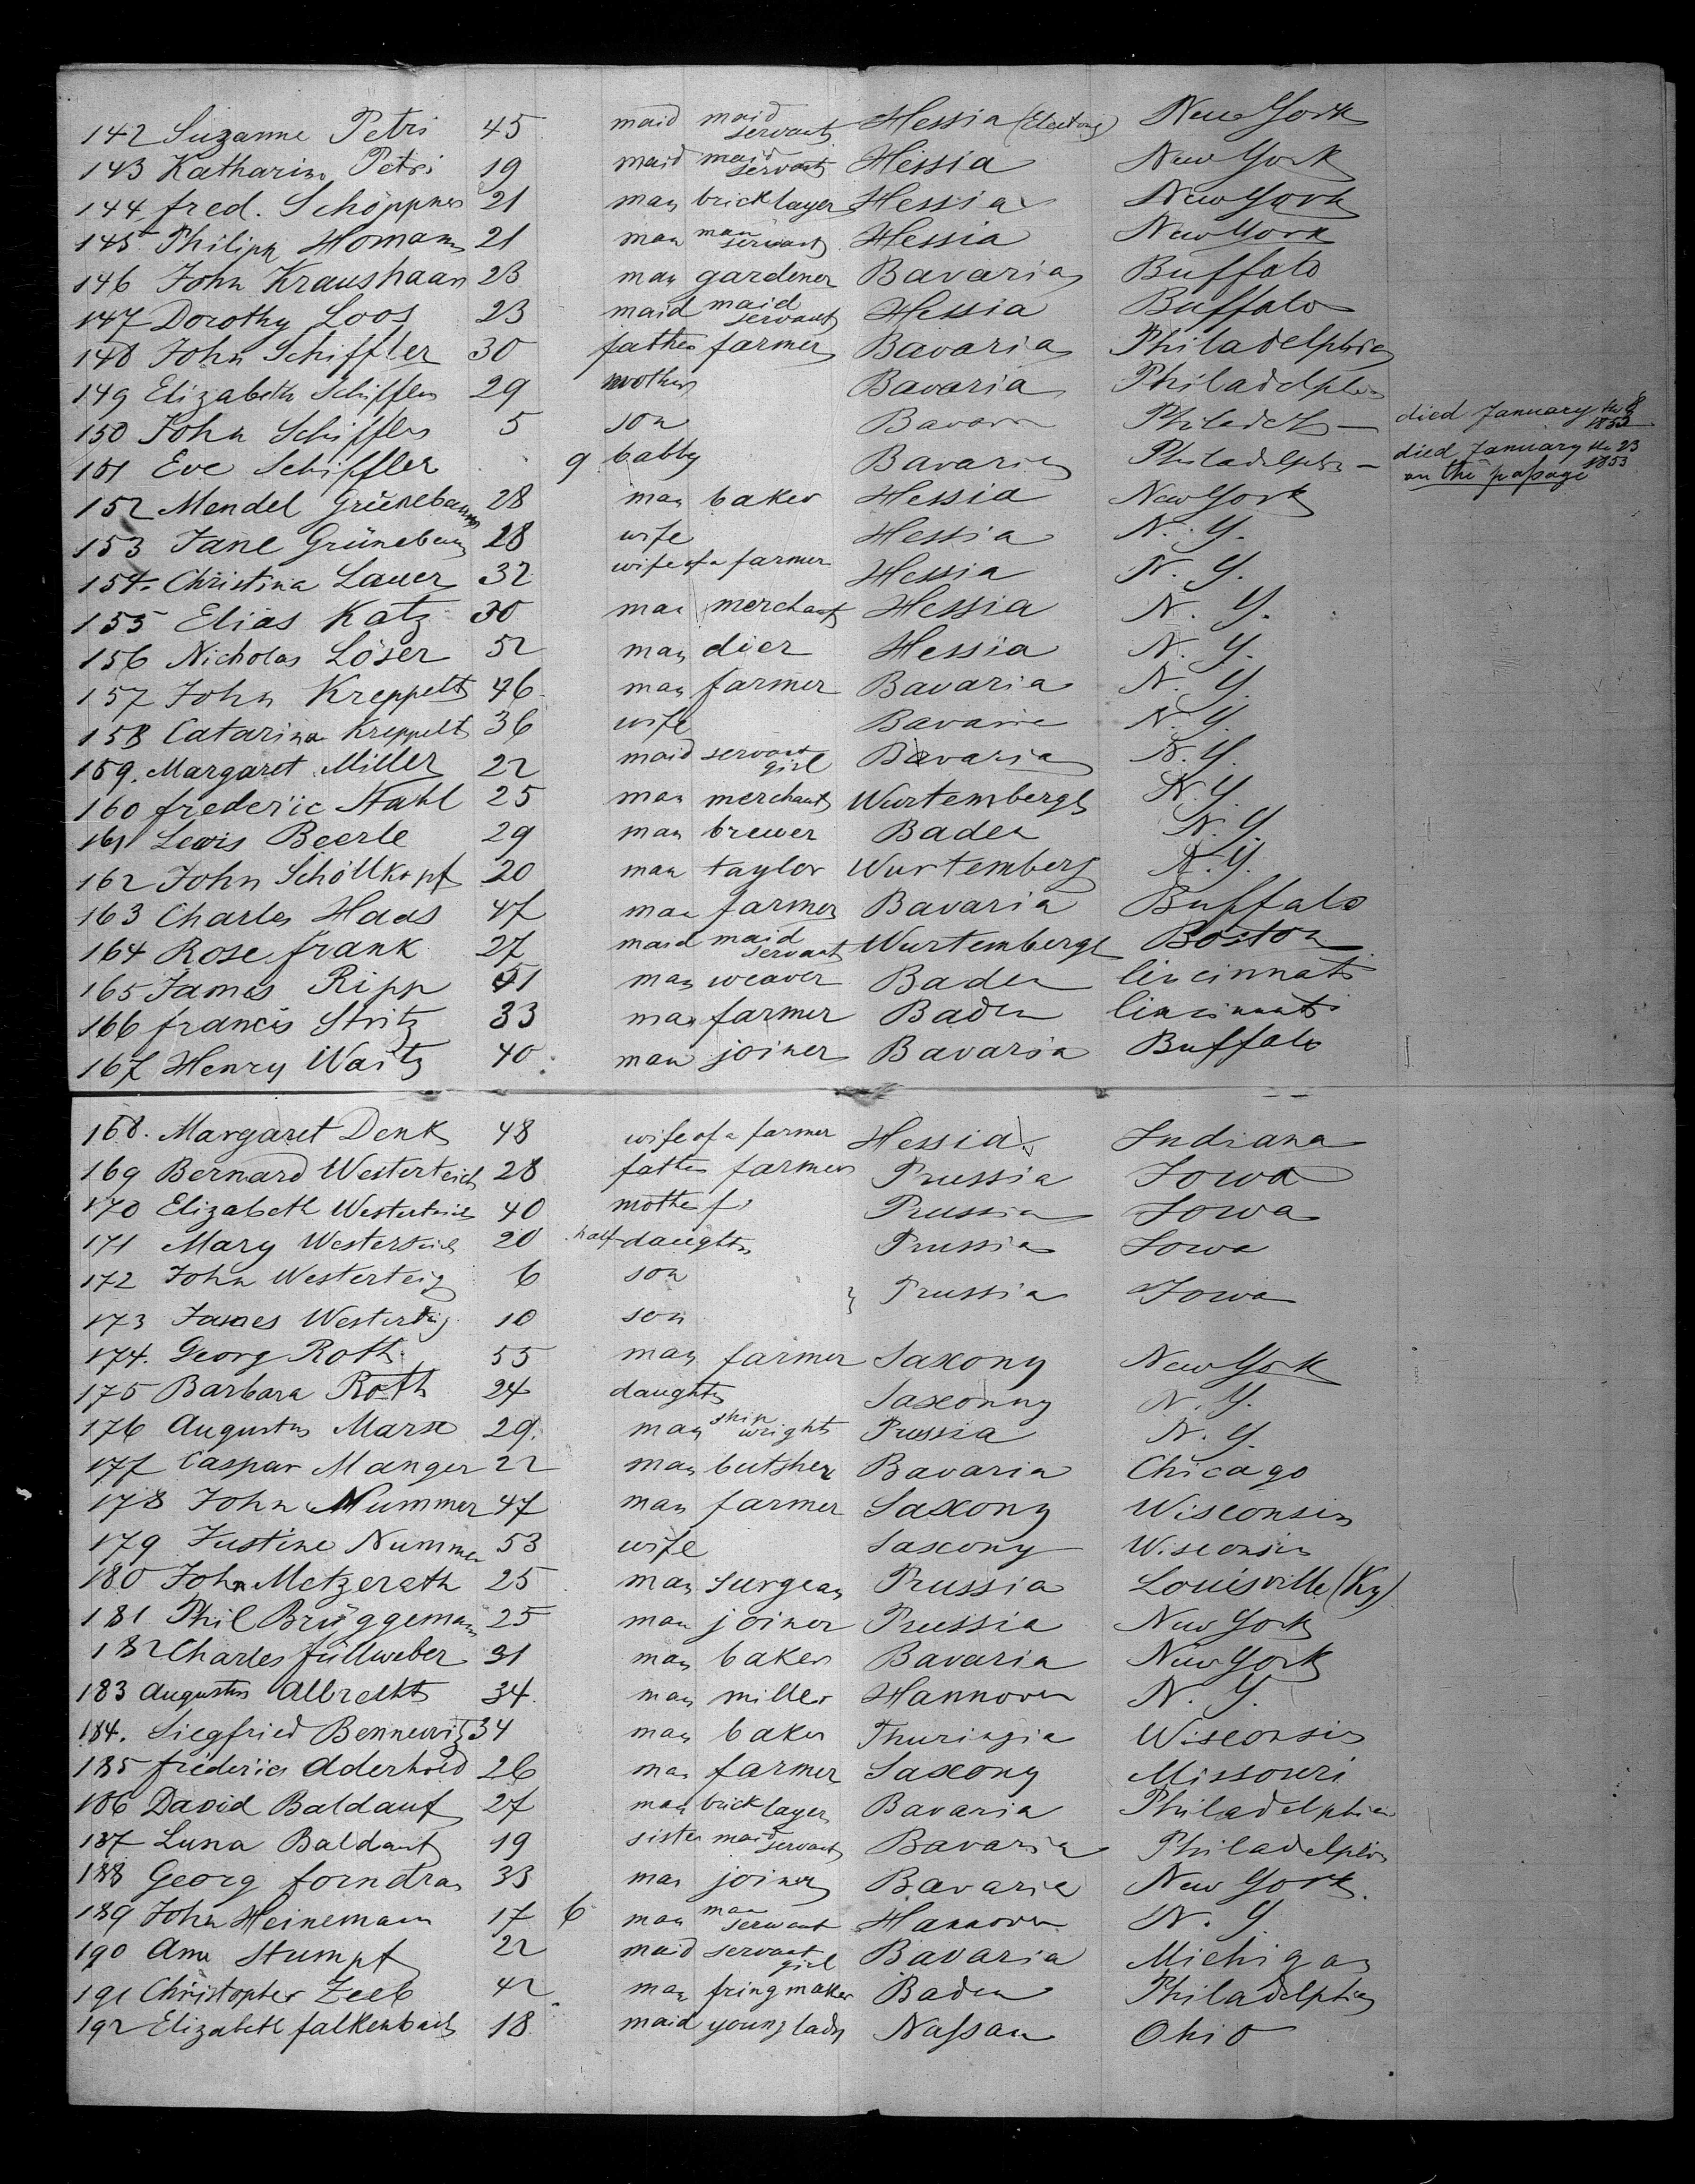 142 Suzanne Petri 45 maid maid servant Hessia New York
143 Katharine Petri 19 maid maid servant Hessia New York
144 fred. Schöppner 21 man bricklayer Hessia New York
145 Philipp Homann 21 man man servant Hessia New York
146 John Kraushaar 23 man gardener Bavaria Buffalo
147 Dorothy Loos 23 maid maid servant Hessia Buffalo
148 John Schiffler 30 father farmer Bavaria Philadelphia
149 Elizabeth Schiffler 29 mother Bavaria Philadelphia
150 John Schiffler 5 son Bavaria Philadelph died January the 8 1853
151 Eve Schiffler 9 babby Bavaria Philadelphia died January the 23 1853 on the passage
152 Mendel Grünebaum 28 man baker Hessia New York
153 Jane Grünebaum 28 wife Hessia N. Y.
154. Christina Lauer 32 wife of a farmer Hessia N. Y.
155 Elias Katz 30 man merchant Hessia N. Y.
156 Nicholas Löser 52 man dier Hessia N. Y.
157 John Kreppelt 46 man farmer Bavaria N. Y.
158 Catarina Kreppelt 36 wife Bavaria N. Y.
159. Margaret Miller 22 maid servant girl Bavaria N. Y.
160 frederic Stahl 25 man merchant Wurtemberg N. Y.
161 Lewis Beerle 29 man brewer Baden N. Y.
162 John Schöllkopf 20 man taylor Wurtemberg N. Y.
163 Charles Haas 47 man farmer Bavaria Buffalo
164 Rose frank 27 maid maid servant Wurtemberg Boston
165 James Ripp 51 man weaver Baden Cincinnati
166 francis Stritz 33 man farmer Baden Cincinnati
167 Henry Waitz 40 man joiner Bavaria Buffalo
168. Margaret Denk 48 wife of a farmer Hessia Indiana
169 Bernard Westerteich 28 father farmer Prussia Iowa
170 Elizabeth Westerteich 40 mother Prussia Iowa
171 Mary Westerteich 20 half daughter Prussia Iowa
172 John Westerteig 6 son } Prussia Iowa
173 James Westerteig 10 son
174. Georg Roth 55 man farmer Saxony New York
175 Barbara Roth 24 daughter Saxonny N. Y.
176 Augustus Marx 29. man ship wright Prussia N. Y.
177 Caspar Manger 22 man butsher Bavaria Chicago
178 John Nummer 47 man farmer Saxony Wisconsin
179 Justine Nummer 53 wife Saxony Wisconsin
180 John Metzerath 25 man surgean Prussia Louisville (Ky)
181 Phil Brüggemann 25 man joiner Prussia New York
182 Charles füllweber 31 man baker Bavaria New York
183 Augustus Albrecht 34. man miller Hannover N. Y.
184. Siegfried Bennewitz 34 man baker Thuringia Wisconsin
185 frederic Aderhold 26 man farmer Saxony Missouri
186 David Baldauf 27 man bricklayer Bavaria Philadelphia
187 Luna Baldauf 19 sister maid servant Bavaria Philadelphia
188 Georg forndran 33 man joiner Bavaria New York
189 John Heinemann 17 6 man man servant Hannover N. Y.
190 Ann Stumpf 22 maid servant girl Bavaria Michigan
191 Christopher Zeeb 42 man fringmaker Baden Philadelphia
192 Elizabeth falkenbach 18 maid young lady Nassau Ohio